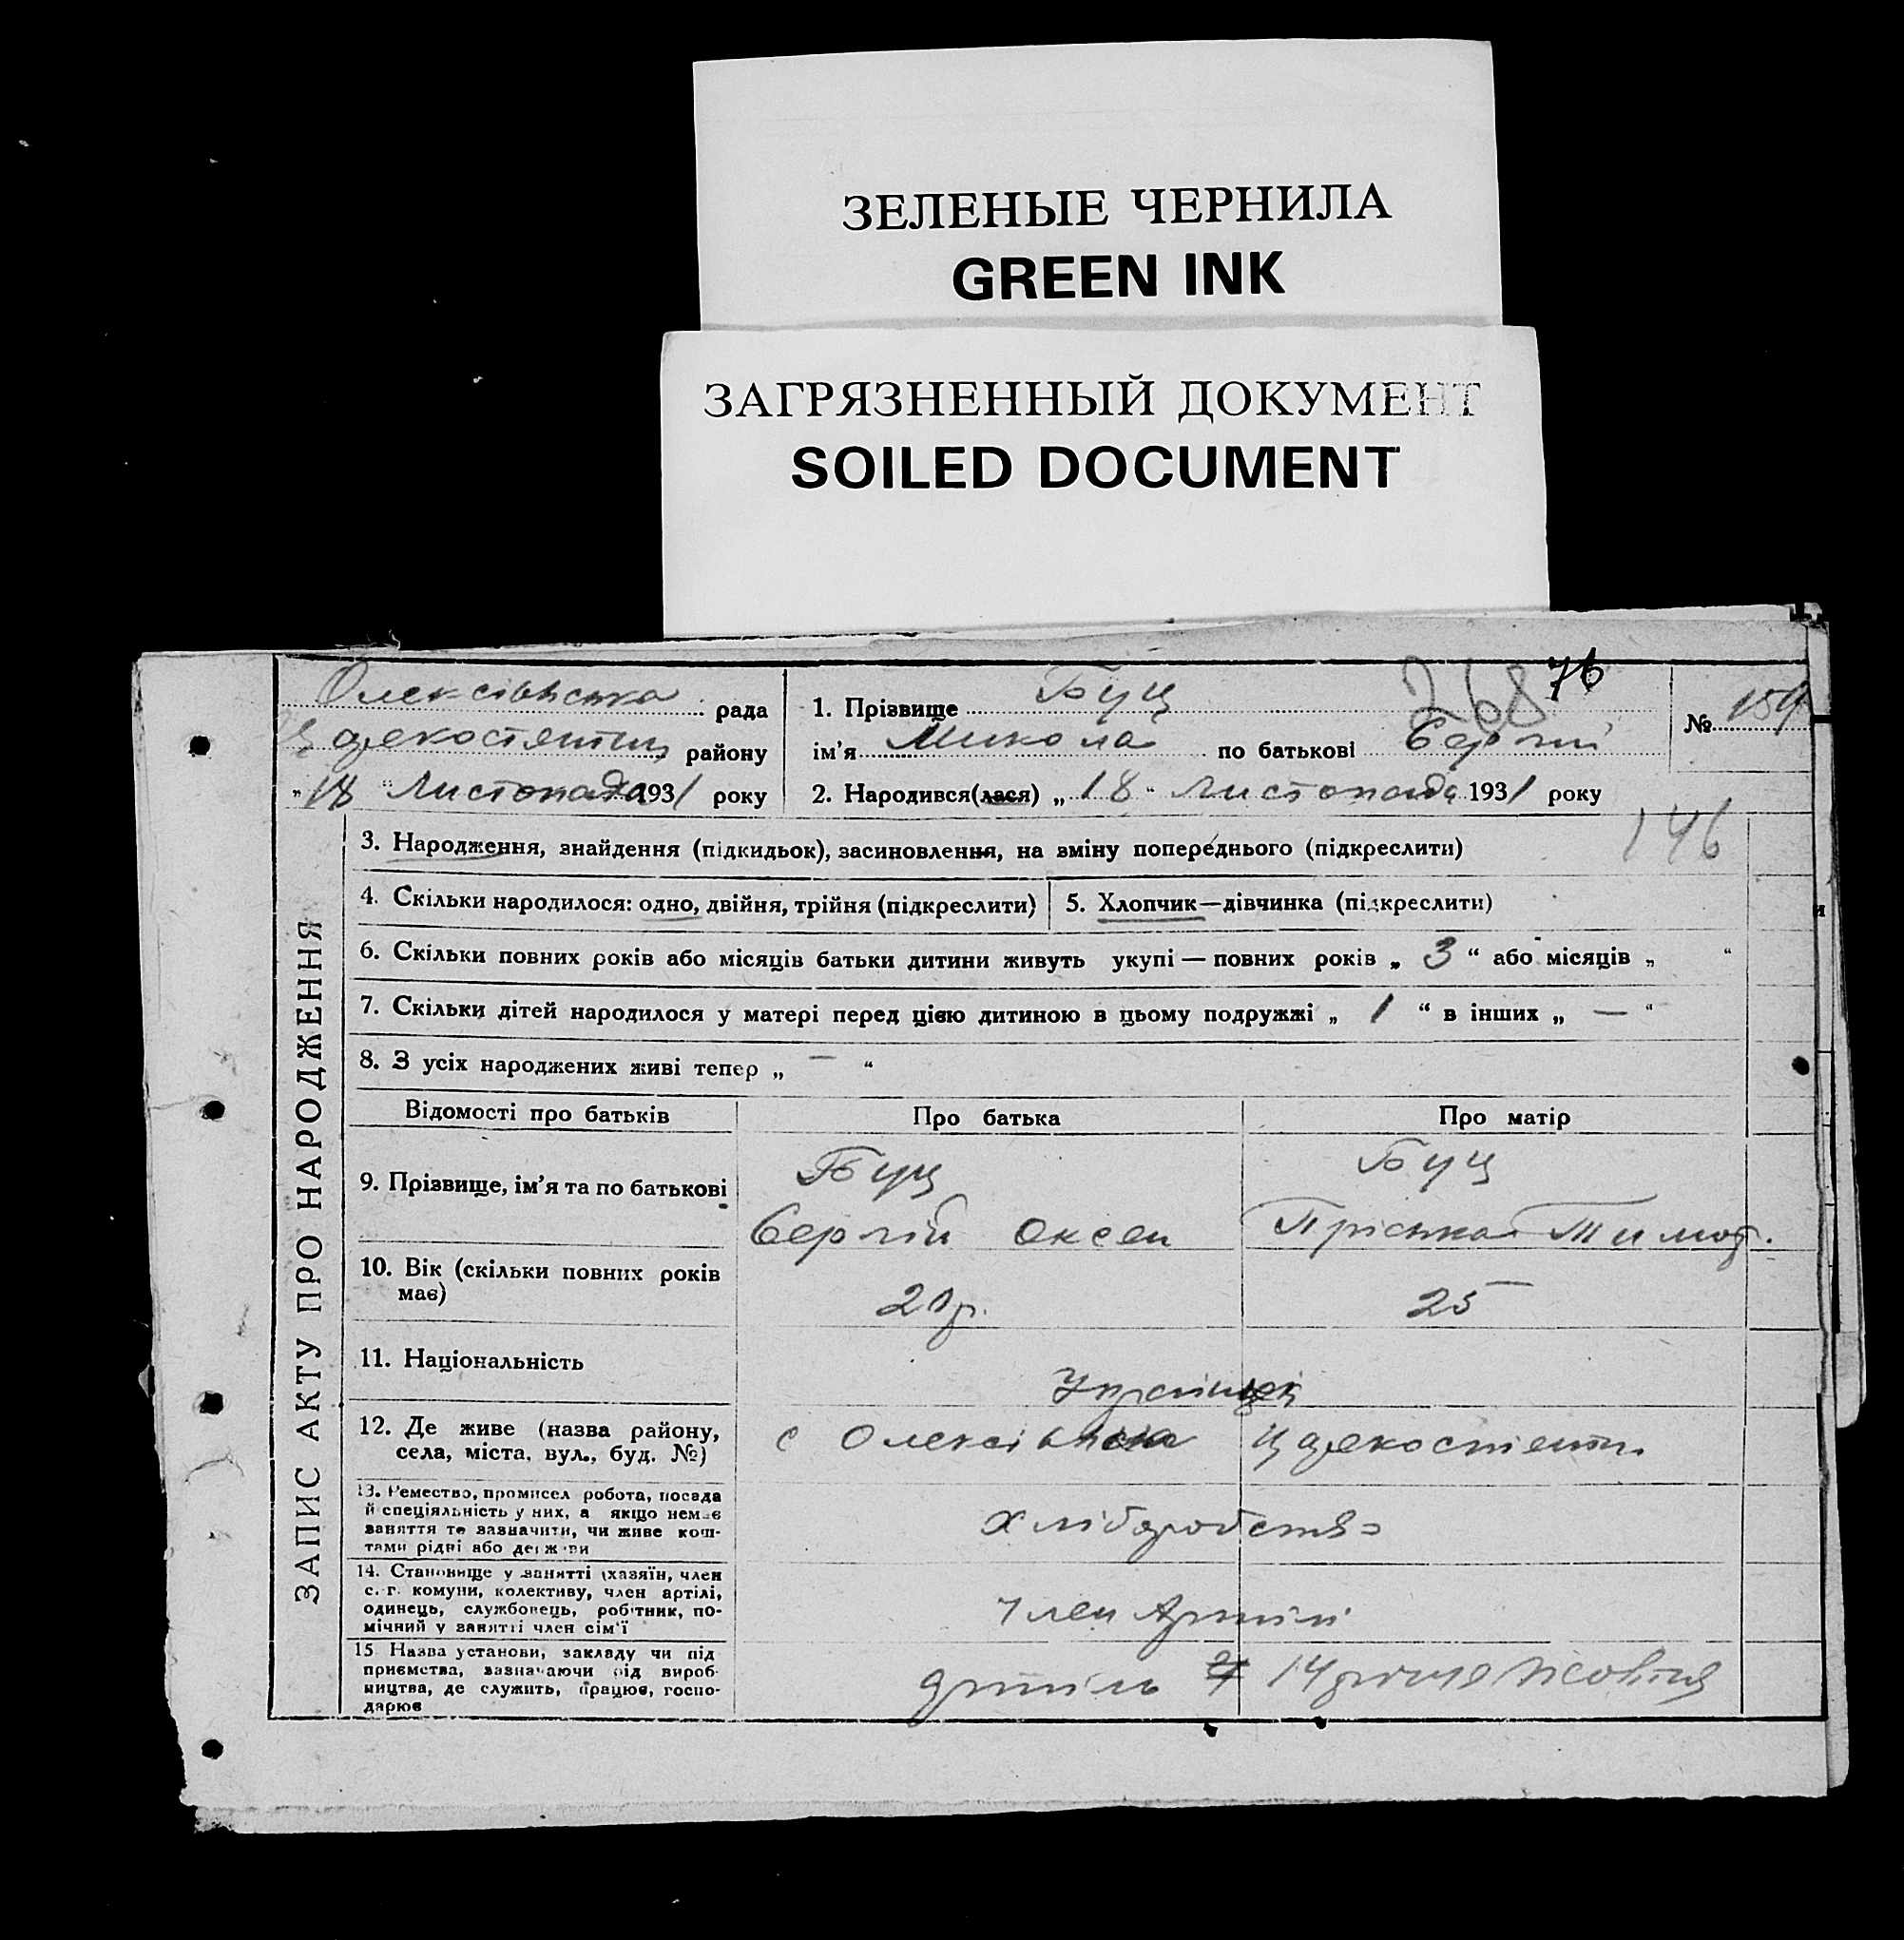 ЗЕЛЕНЫЕ ЧЕРНИЛА
GREEN INK
ЗАГРЯЗНЕННЫЙ ДОКУМЕНТ
SOILED DOCUMENT
268 76
Олексіівська рада
району
"18" Листопада 1931 року
1. Прізвище Буц
ім'я Микола по батькові Сергій
2. Народився(лася) „18" Листопада 1931 року
№ 154
146
ЗАПИС АКТУ ПРО НАРОДЖЕННЯ
3. Народження, знайдення (підкидьок), засиновлення, на зміну попереднього (підкреслити)
4. Скільки народилося: одно, двійня, трійня (підкреслити)
5. Хлопчик—дівчинка (підкреслити)
6. Скільки повних років або місяців батьки дитини живуть укупі — повних років „ 3 “ або місяців „ “
7. Скільки дітей народилося у матері перед цією дитиною в цьому подружжі „ 1 “ в інших „ — “
8. З усіх народжених живі тепер „ — “
Відомості про батьків Про батька Про матір
9. Прізвище, ім'я та по батькові
Буц
Сергій Оксен
Буц
Пріська Тимоф.
10. Вік (скільки повних років
має)
20р. 25
11. Національність
12. Де живе (назва району,
села, міста, вул., буд. №)
с Олексіівка
13. Ремество, промисел робота, посада
й спеціяльність у них, а якщо немає
заняття те зазначити, чи живе кош-
тами рідні або держави
Хліборобство
14. Становище у занятті (хазяїн, член
с.-г. комуни, колективу, член артілі,
одинець, службовець, робітник, по-
мічний у занятті член сім'ї
Член Артілі
15 Назва установи, закладу чи під
приємства, зазначаючи рід вироб-
ництва, де служить, працює, госпо-
дарює
Артіль 14 річчя Жовтня